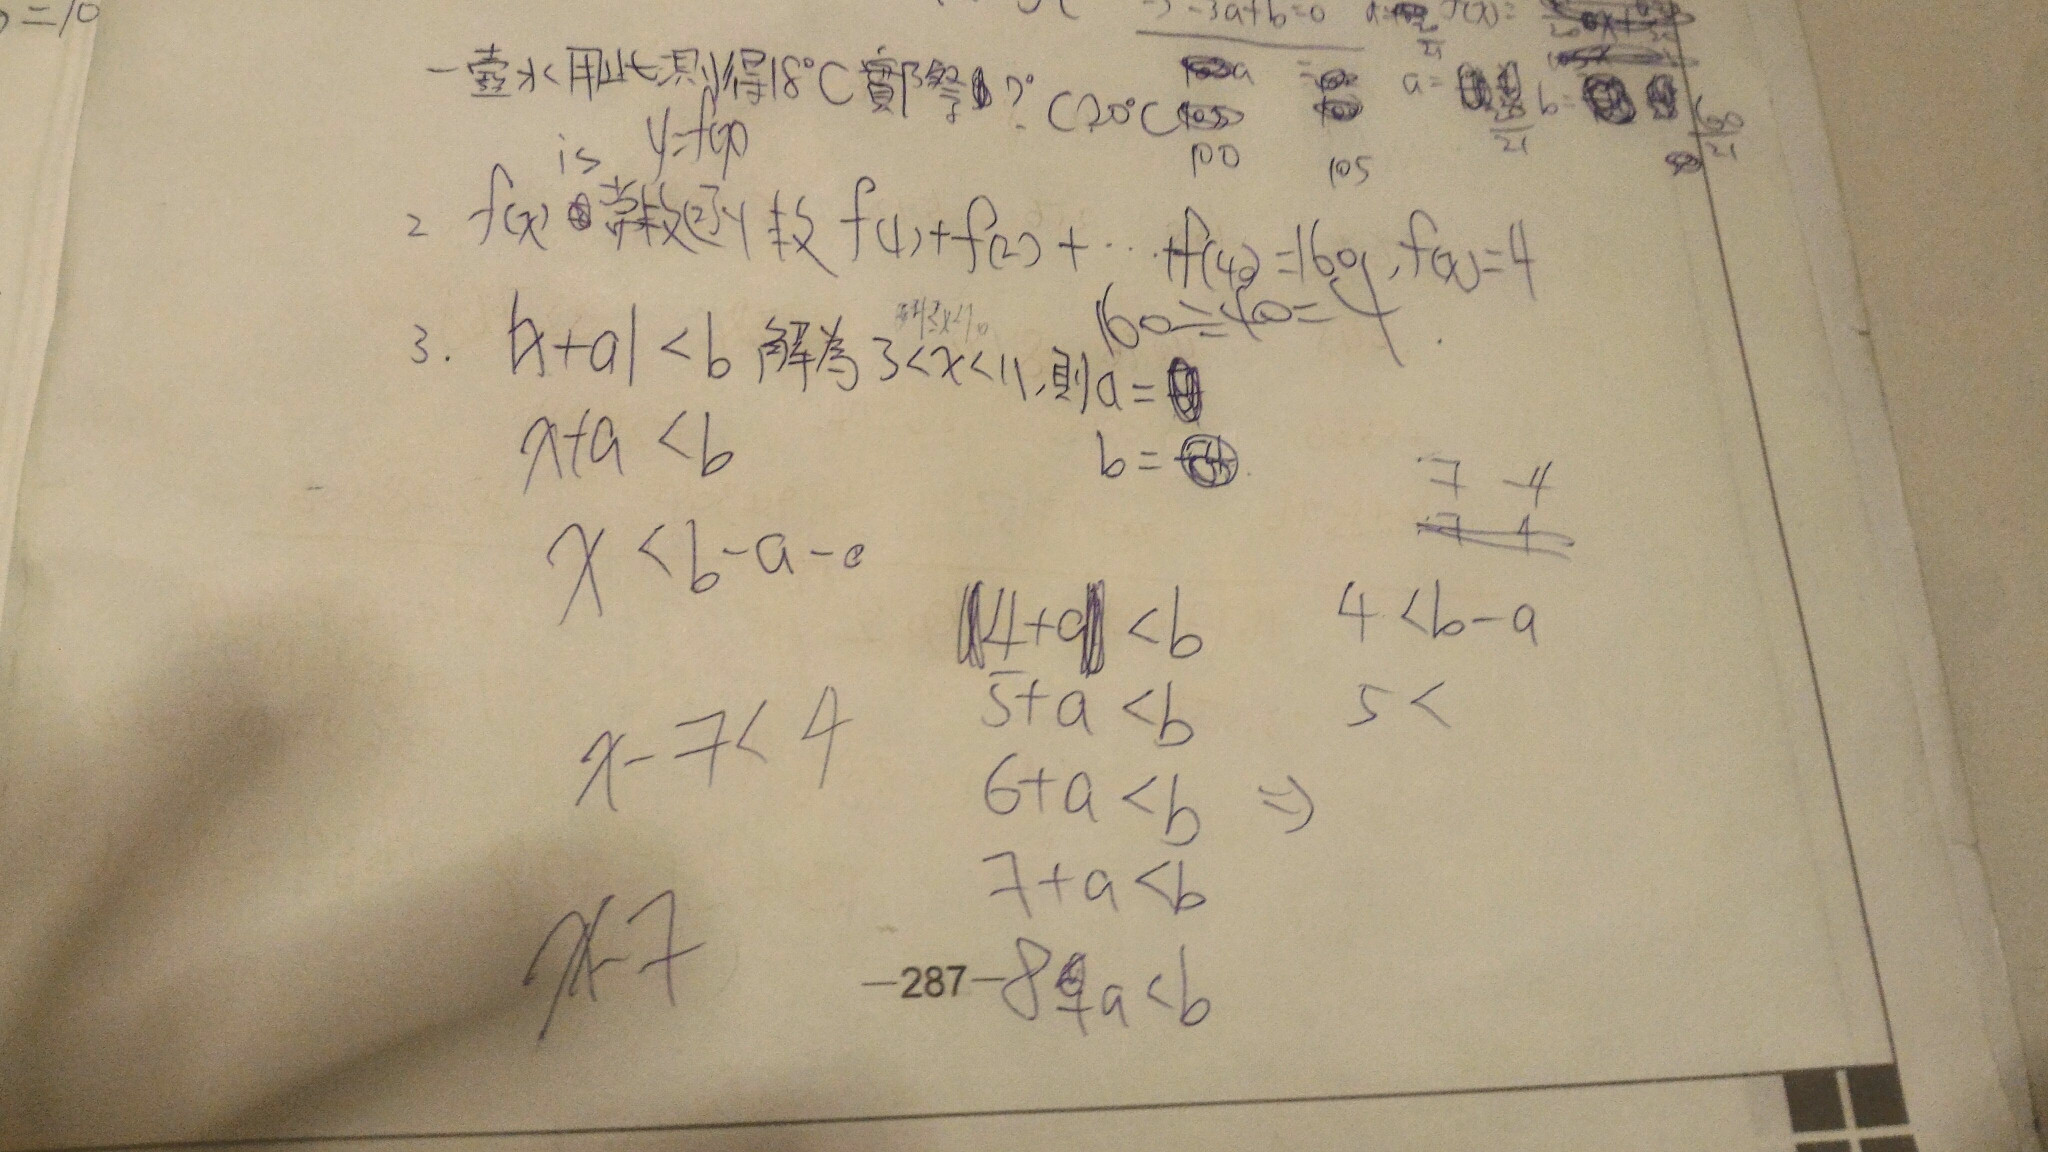 =10
-3-3a+b=0
一壺水用此測得18°C實際?°C20°C
a=
20
21
b=
60
21
100 105
is y=f(x)
2 f(x) 常數函數 f(1)+f(2)+…+f(40)=160, f(x)=4
160÷40=4
3. |x+a|<b 解為 3<x<11, 則 a=
b=
x+a<b
7 -4
x<b-a-
4+a<b 4<b-a
5+a<b 5<
x-7<4
6+a<b ⇒
7+a<b
x-7
-287-
8+a<b